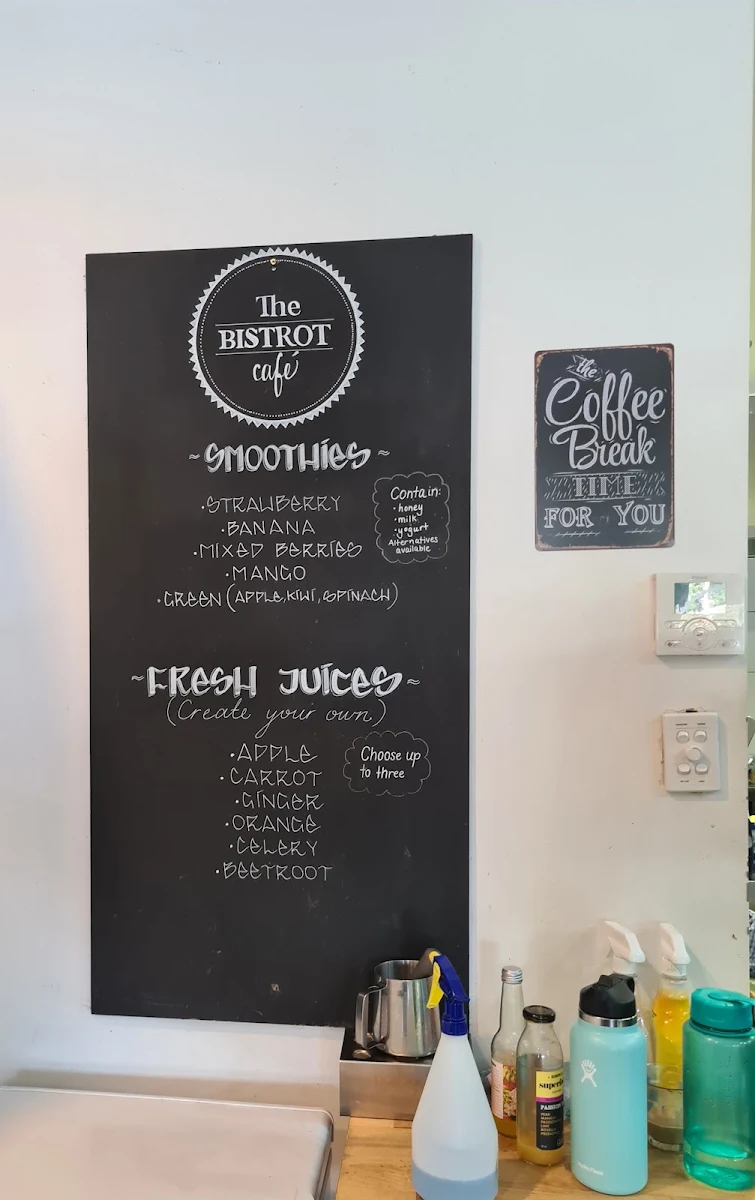 The
BISTROT
café
~SMOOTHIES~
·STRAWBERRY
·BANANA
·MIXED BERRIES
·MANGO
·GREEN (APPLE, KIWI, SPINACH)
Contain:
·honey
·milk
·yogurt
Alternatives
available
~FRESH JUICES~
(Create your own)
·APPLE
·CARROT
·GINGER
·ORANGE
·CELERY
·BEETROOT
Choose up
to three
the
Coffee
Break
TIME
FOR YOU